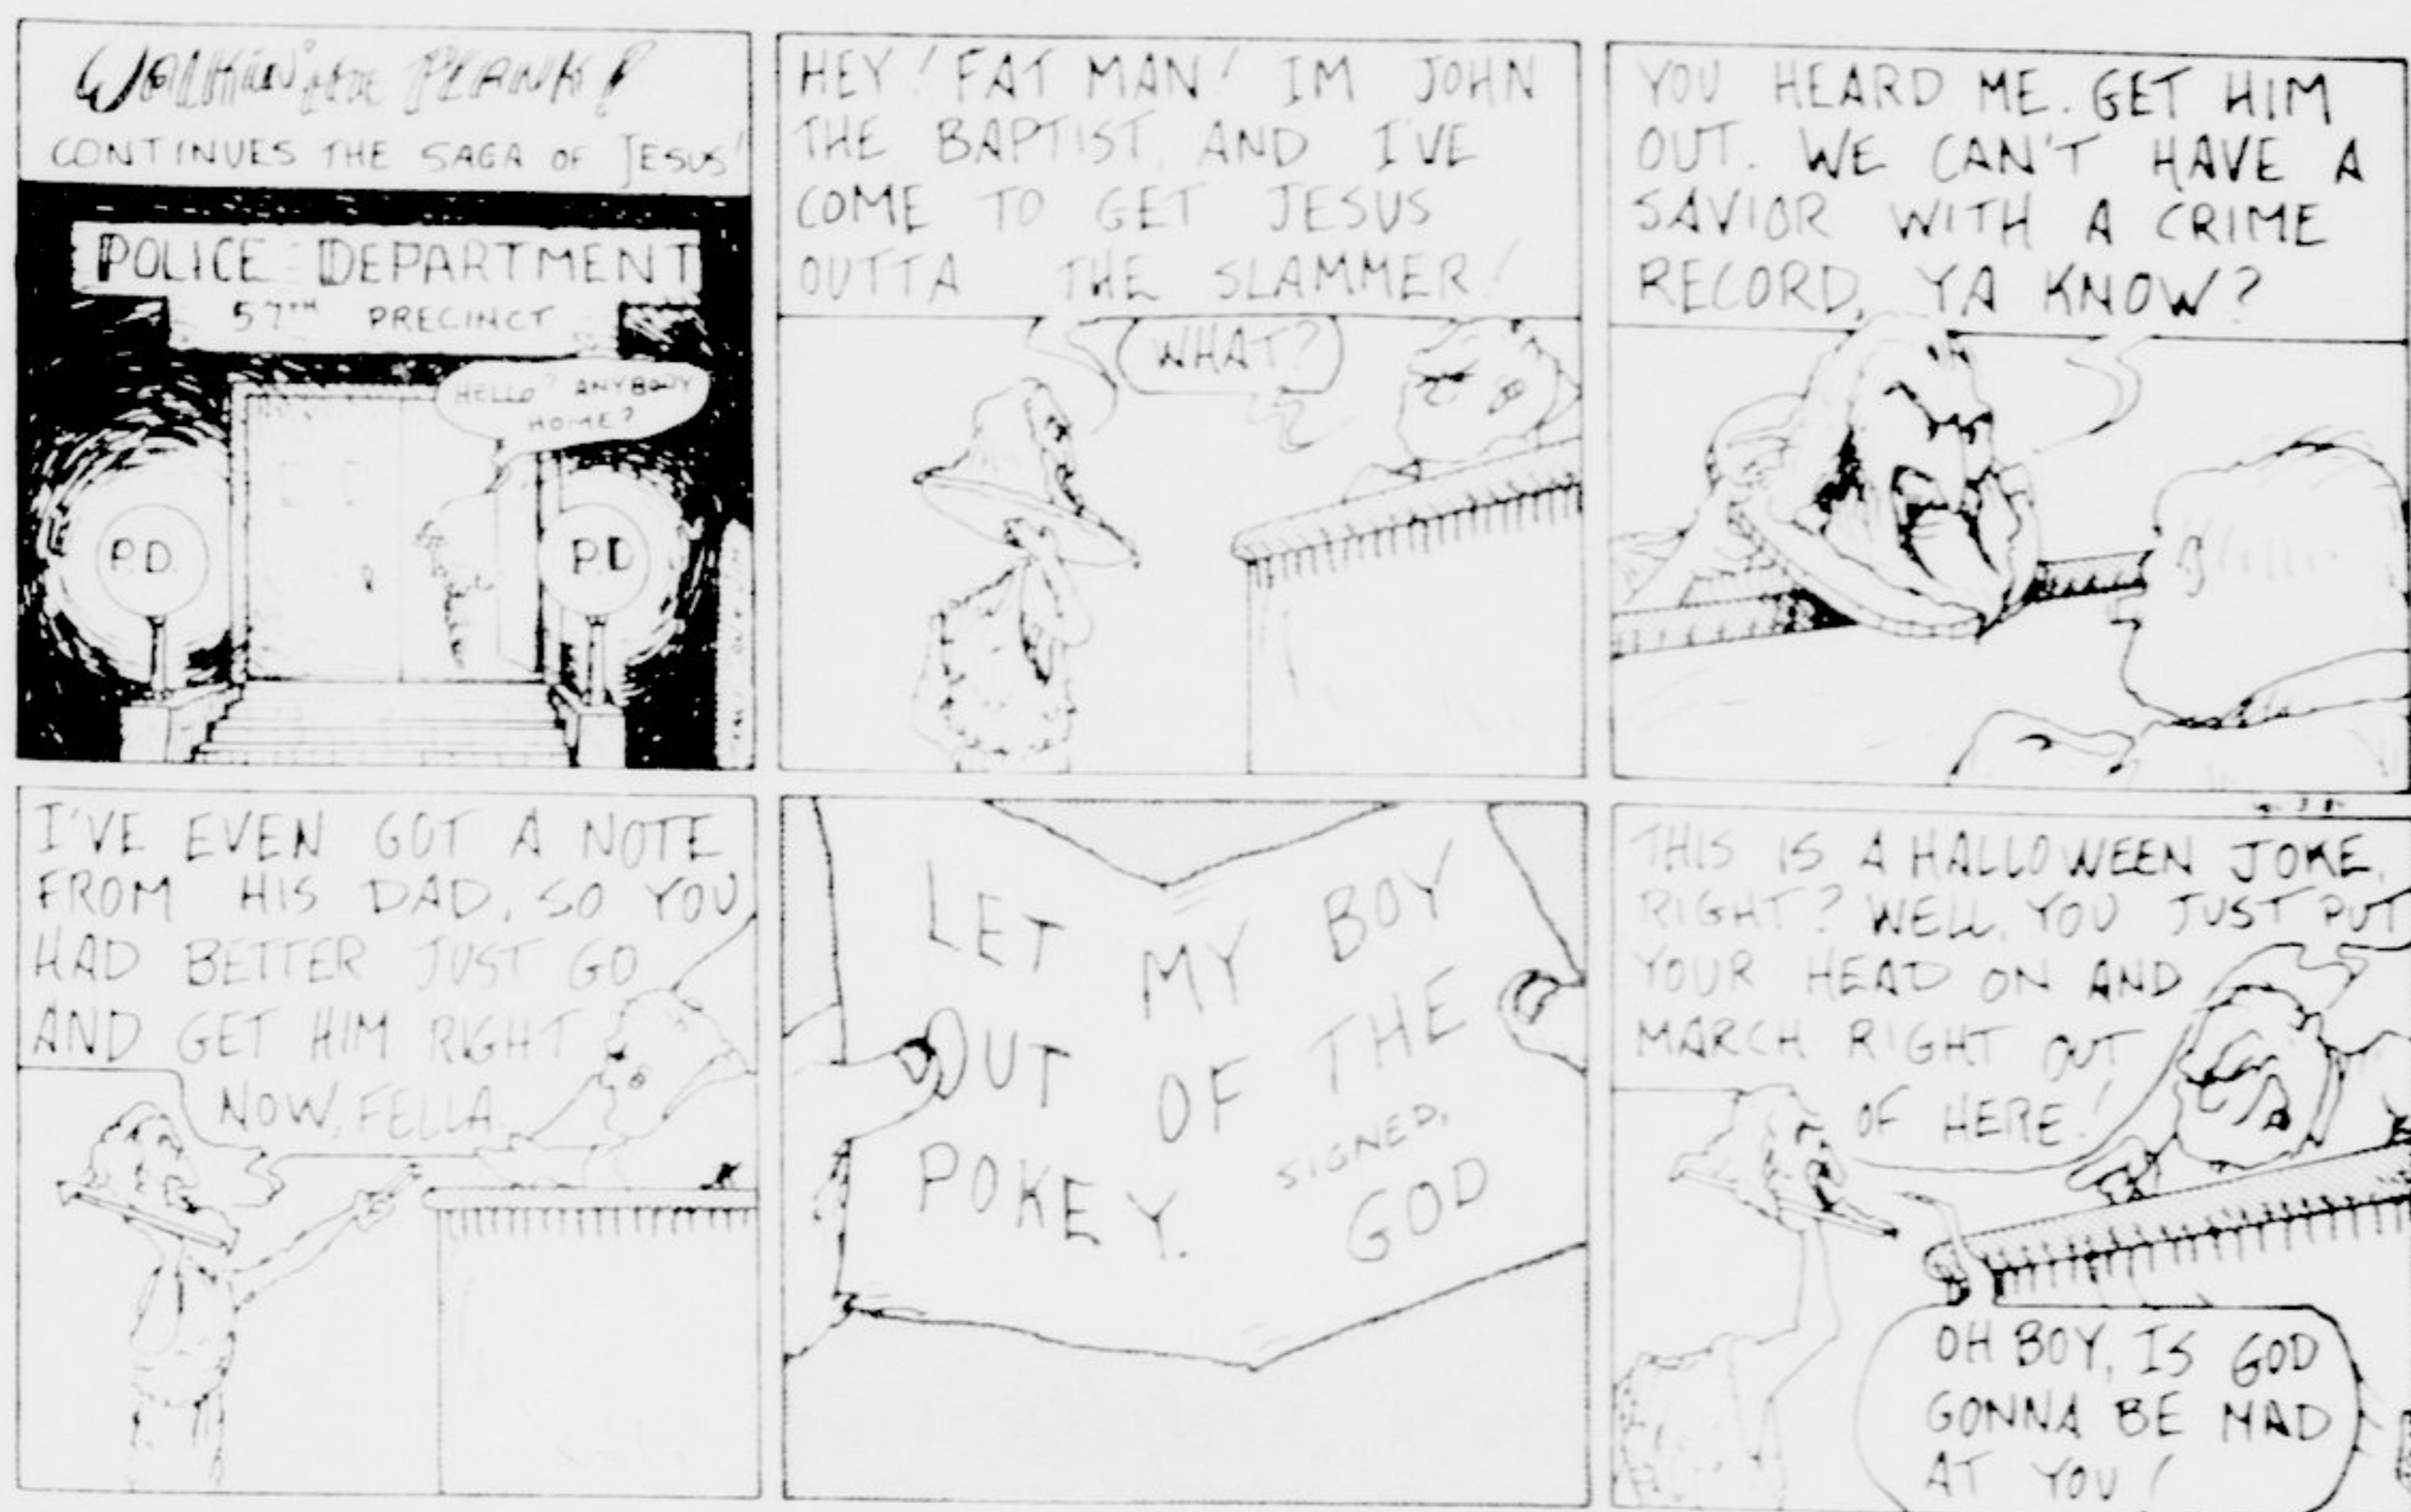 WALKIN' THE PLANK!
CONTINUES THE SAGA OF JESUS!
POLICE DEPARTMENT
57TH PRECINCT
HELLO? ANYBODY
HOME?
P.D.
P.D
HEY! FAT MAN! IM JOHN
THE BAPTIST, AND I'VE
COME TO GET JESUS
OUTTA THE SLAMMER!
WHAT?
YOU HEARD ME. GET HIM
OUT. WE CAN'T HAVE A
SAVIOR WITH A CRIME
RECORD, YA KNOW?
I'VE EVEN GOT A NOTE
FROM HIS DAD, SO YOU
HAD BETTER JUST GO
AND GET HIM RIGHT
NOW, FELLA.
LET MY BOY
OUT OF THE
POKEY.
SIGNED,
GOD
THIS IS A HALLOWEEN JOKE,
RIGHT? WELL, YOU JUST PUT
YOUR HEAD ON AND
MARCH RIGHT OUT
OF HERE!
OH BOY, IS GOD
GONNA BE MAD
AT YOU!